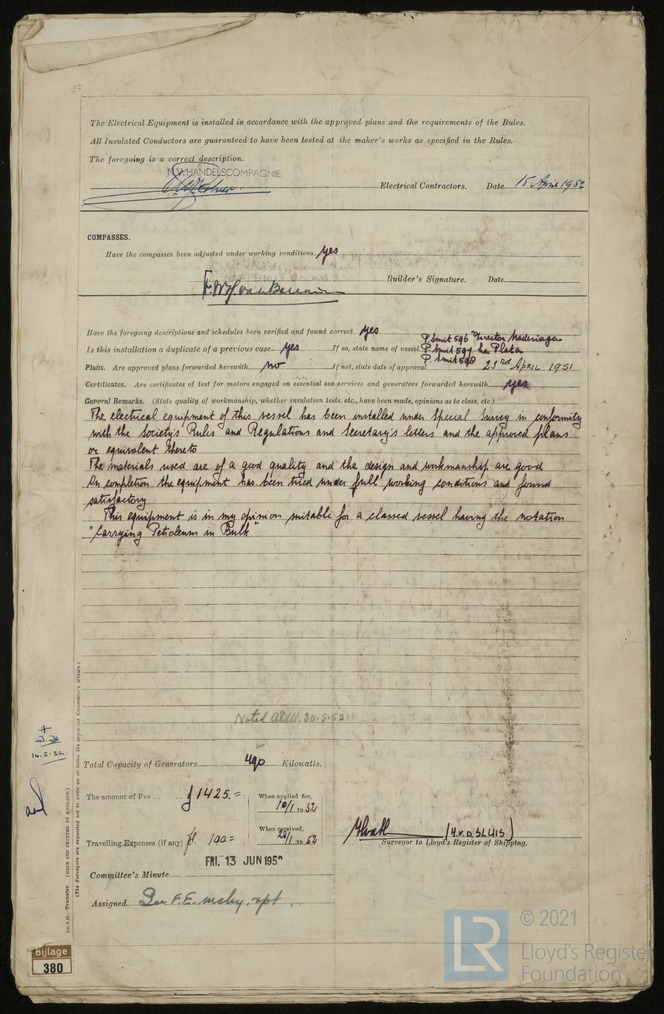 The Electrical Equipment is installed in accordance with the approved plans and the requirements of the Rules.
All Insulated Conductors are guaranteed to have been tested at the maker's works as specified in the Rules.
The foregoing is a correct description.
N.V. HANDELSCOMPAGNIE
Electrical Contractors. Date 15 April 1952
COMPASSES.
Have the compasses been adjusted under working conditions yes
Builder's Signature. Date
Have the foregoing descriptions and schedules been verified and found correct yes
Is this installation a duplicate of a previous case yes If so, state name of vessel P. Smit 596
P. Smit 597 La Plata
P. Smit 598
Plans. Are approved plans forwarded herewith no If not, state date of approval 23rd APRIL 1951
Certificates. Are certificates of test for motors engaged on essential sea services and generators forwarded herewith yes
General Remarks. (State quality of workmanship, whether insulation tests, etc., have been made, opinions as to class, etc.)
The electrical equipment of this vessel has been installed under Special Survey in conformity
with the Society's Rules and Regulations and Secretary's letters and the approved plans
or equivalent thereto
The materials used are of a good quality and the design and workmanship are good
On completion the equipment has been tried under full working conditions and found
satisfactory
This equipment is in my opinion suitable for a classed vessel having the notation
"Carrying Petroleum in Bulk"
Noted 30.5.52
14.5.52.
Total Capacity of Generators 490 Kilowatts.
The amount of Fee ... ƒ 1425.=
When applied for, 10/1 1952
Travelling Expenses (if any) ƒ 100=
When received, 1952
(H.v.d. SLUIS)
Surveyor to Lloyd's Register of Shipping.
FRI. 13 JUN 195
Committee's Minute
Assigned See F.E. mchy. rpt.
(The Surveyors are requested not to write on or below the space for Committee's Minute.)
Transfer. (MADE AND PRINTED IN ENGLAND.)
Bijlage
380
LR
© 2021
Lloyd's Register
Foundation